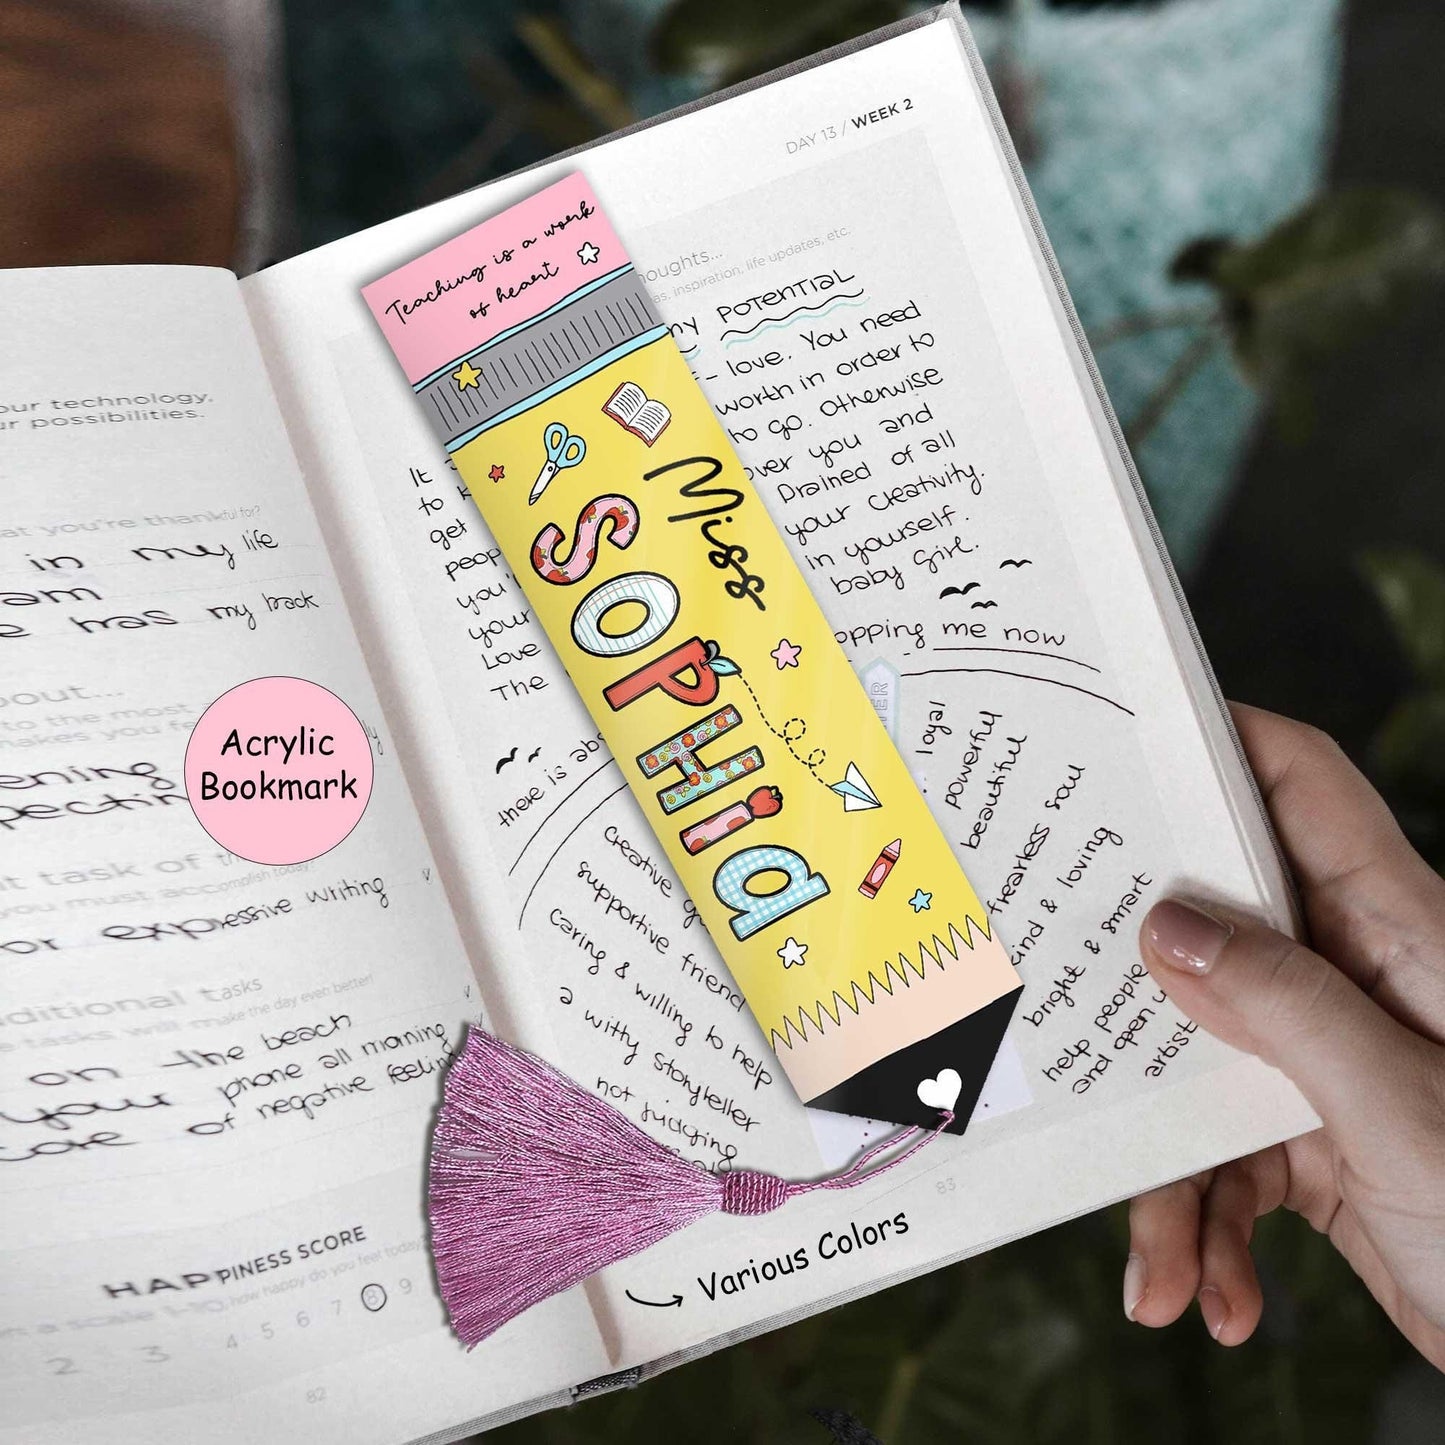 Teaching is a work
of heart
Miss
SOPHIA
Acrylic
Bookmark
Various Colors
DAY 13 / WEEK 2
houghts...
as, inspiration, life updates, etc.
my POTENTIAL
- love. You need
worth in order to
to go. Otherwise
over you and
Drained of all
your creativity.
in yourself.
baby girl.
It
to k
get
peop
you'
your
Love
The
opping me now
there is abs
creative
supportive friend
caring & willing to help
a witty storyteller
not judging
loyal
powerful
beautiful
frearless soul
kind & loving
bright & smart
help people
and open u
artist
83
our technology,
ur possibilities.
at you're thankful for?
in my life
am
e has my back
bout...
to the most
makes you fe
ening
pecting
t task of th
you must accomplish today
or expressive writing
ditional tasks
e tasks will make the day even better!
on the beach
your phone all morning
care of negative feelin
HAPPINESS SCORE
n a scale 1-10, how happy do you feel today
2 3 4 5 6 7 8 9
82